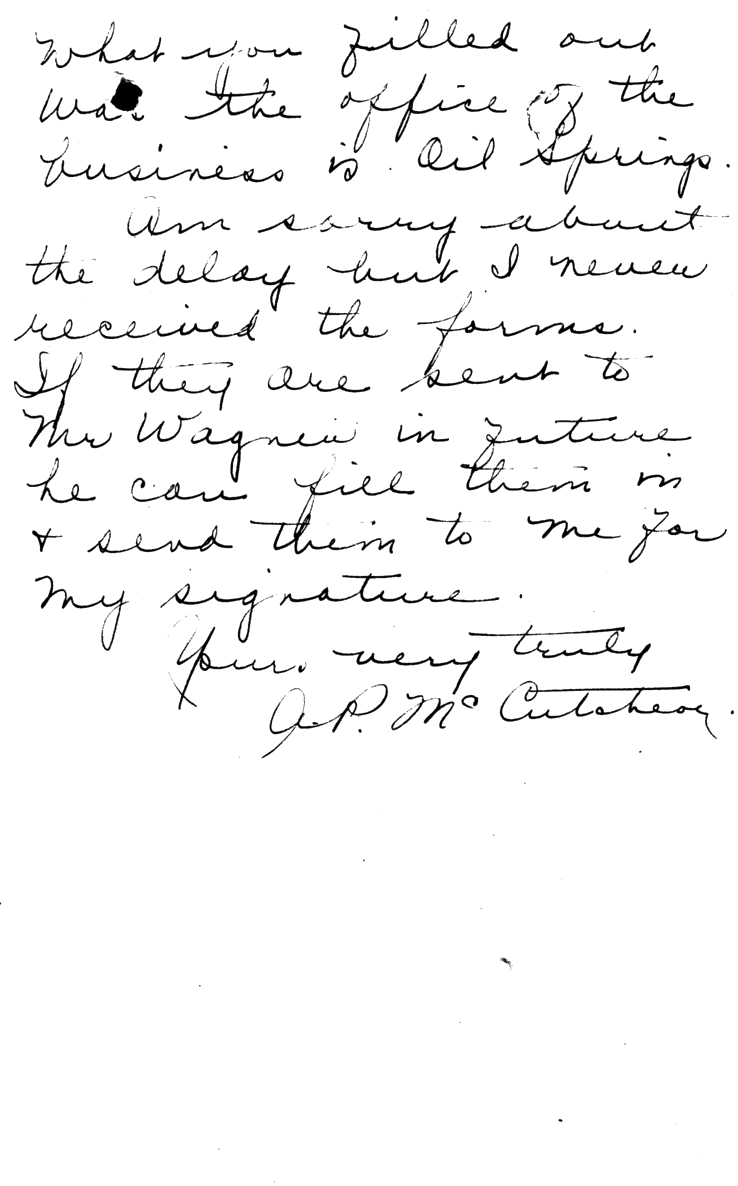 What you filled out
was the office of the
business is Oil Springs.
Am sorry about
the delay but I never
received the forms.
If they are sent to
Mr Wagner in future
he can fill them in
& send them to me for
my signature.
Yours very truly
A.P. McCutcheon.